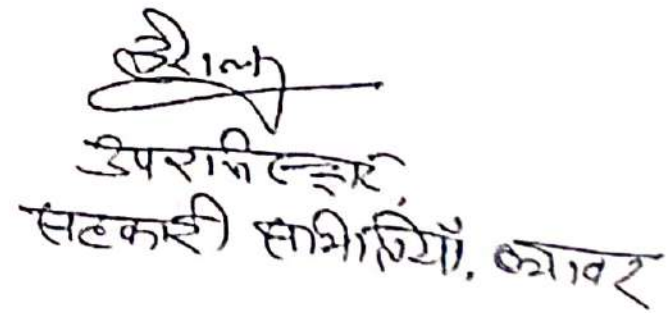 उप रजिस्ट्रार,
सहकारी समितियाँ, ब्यावर